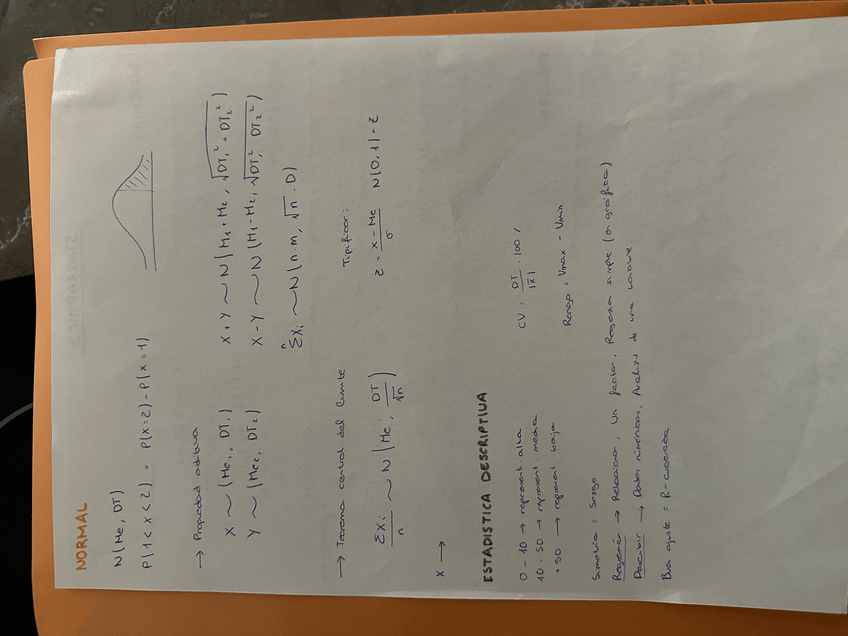 NORMAL
N(Me, DT)
P(1 < x < 2) = P(x=2) - P(x=1)
→ Propiedad aditiva
X ~ (Me₁, DT₁) X+Y ~ N(M₁+M₂, √DT₁² + DT₂²)
Y ~ (Me₂, DT₂) X-Y ~ N(M₁-M₂, √DT₁² DT₂²)
n
ΣXᵢ ~ N(n·m, √n · D)
→ Teorema central del límite Tipificar:
ΣXᵢ / n ~ N(Me, DT / √n) z = x - Me / σ N(0,1) = z
X →
ESTADISTICA DESCRIPTIVA
0 - 10 → represent alta CV = DT / |x̄| · 100%
10 - 50 → represent. media
+50 → represent baja Rango = Vmax - Vmin
Simetría = Sesgo
Regresión → Relacionar, Un factor, Regresión simple (o gráfica)
Describir → Datos numéricos, Análisis de una variable
Buen ajuste = R-cuadrado